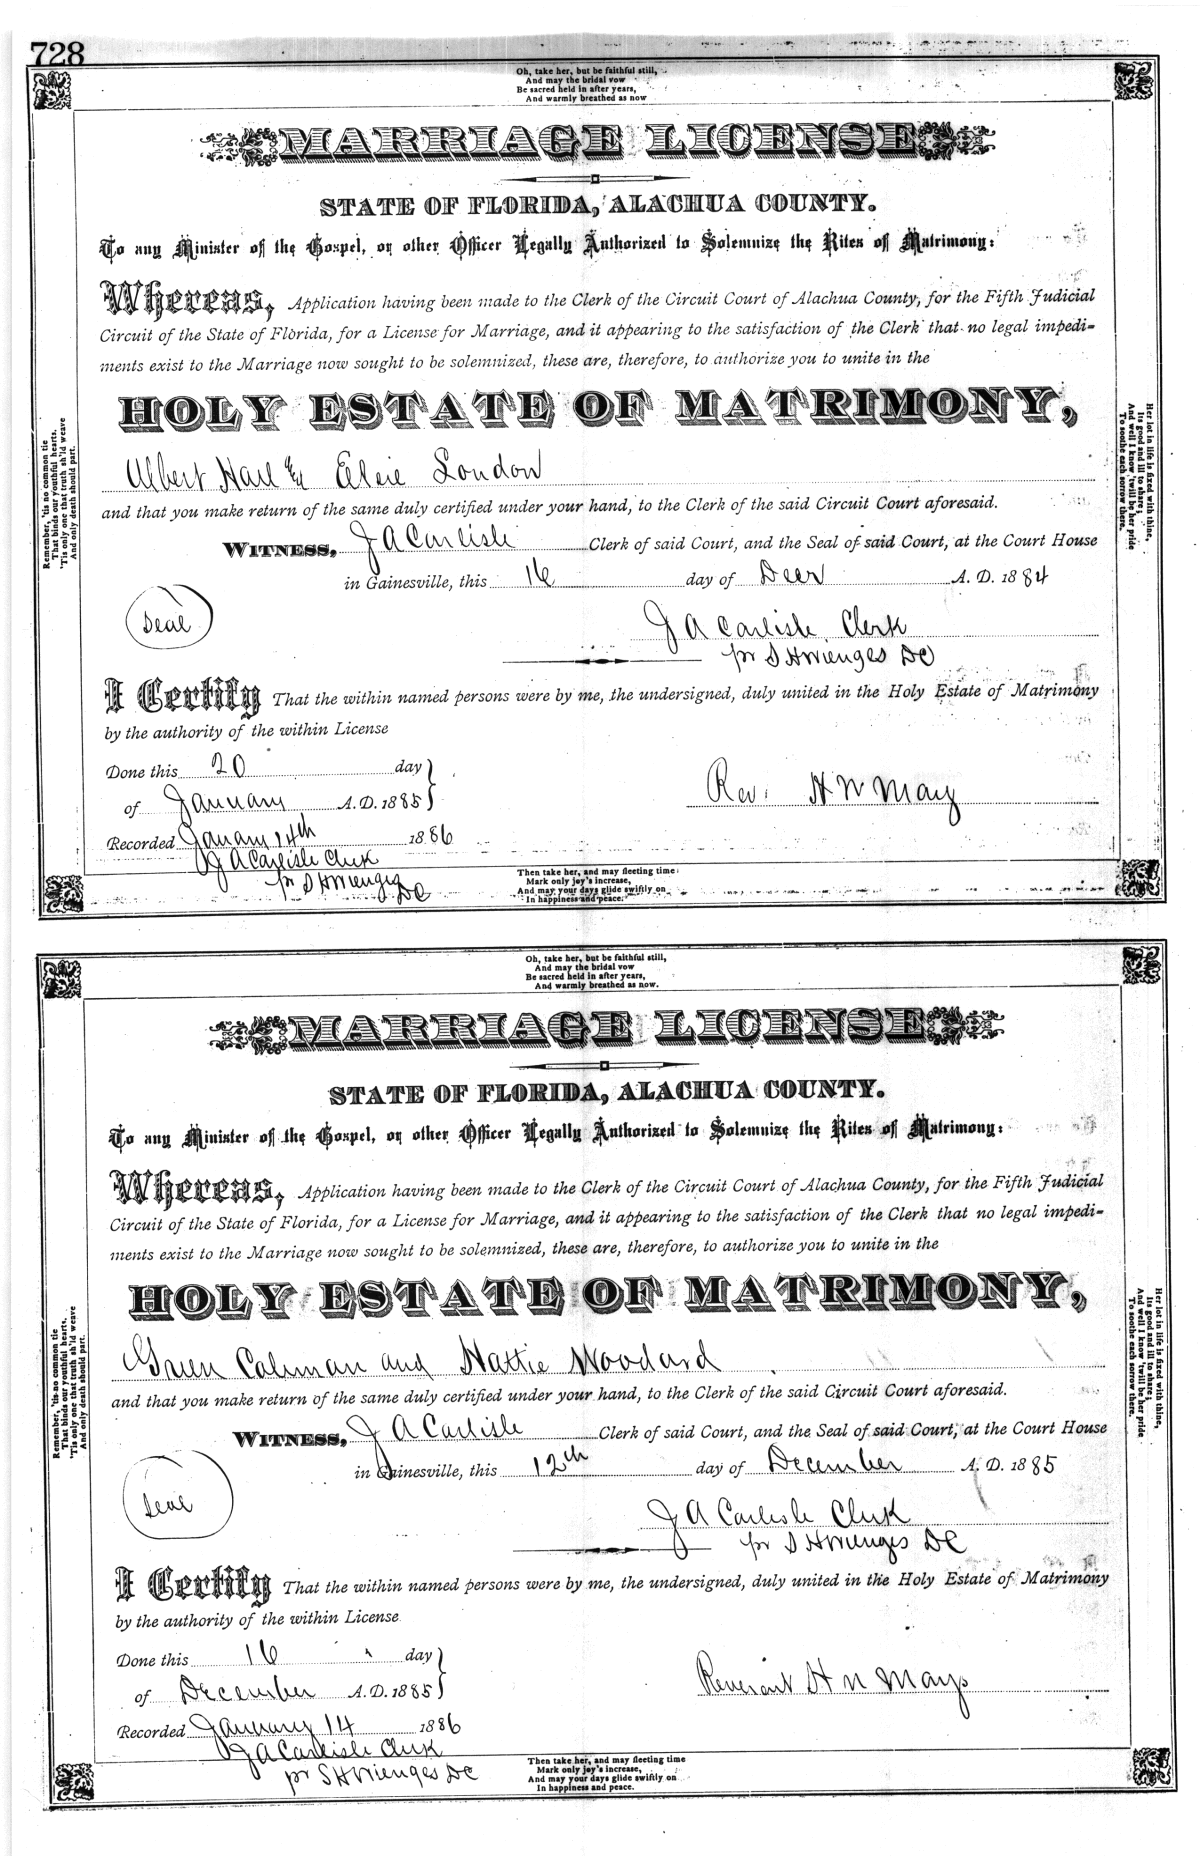 728
Oh, take her, but be faithful still,
And may the bridal vow
Be sacred held in after years,
And warmly breathed as now
MARRIAGE LICENSE
STATE OF FLORIDA, ALACHUA COUNTY.
To any Minister of the Gospel, or other Officer Legally Authorized to Solemnize the Rites of Matrimony:
Whereas, Application having been made to the Clerk of the Circuit Court of Alachua County, for the Fifth Judicial
Circuit of the State of Florida, for a License for Marriage, and it appearing to the satisfaction of the Clerk that no legal impedi-
ments exist to the Marriage now sought to be solemnized, these are, therefore, to authorize you to unite in the
HOLY ESTATE OF MATRIMONY,
Albert Hall & Elsie London
and that you make return of the same duly certified under your hand, to the Clerk of the said Circuit Court aforesaid.
WITNESS, J A Carlisle Clerk of said Court, and the Seal of said Court, at the Court House
in Gainesville, this 16 day of Decr A. D. 1884
Seal
J A Carlisle Clerk
pr S H Wienges DC
I Certify That the within named persons were by me, the undersigned, duly united in the Holy Estate of Matrimony
by the authority of the within License
Done this 20 day
of January A.D. 1885
Rev. H W May
Recorded January 14th 1886
J A Carlisle Clerk
pr S H Wienges DC
Remember, 'tis no common tie
That binds our youthful hearts.
'Tis only one that truth sh'ld weave
And only death should part.
Her lot in life is fixed with thine,
Its good and ill to share;
And well I know 'twill be her pride
To soothe each sorrow there.
Then take her, and may fleeting time
Mark only joy's increase,
And may your days glide swiftly on
In happiness and peace.
Oh, take her, but be faithful still,
And may the bridal vow
Be sacred held in after years,
And warmly breathed as now.
MARRIAGE LICENSE
STATE OF FLORIDA, ALACHUA COUNTY.
To any Minister of the Gospel, or other Officer Legally Authorized to Solemnize the Rites of Matrimony:
Whereas, Application having been made to the Clerk of the Circuit Court of Alachua County, for the Fifth Judicial
Circuit of the State of Florida, for a License for Marriage, and it appearing to the satisfaction of the Clerk that no legal impedi-
ments exist to the Marriage now sought to be solemnized, these are, therefore, to authorize you to unite in the
HOLY ESTATE OF MATRIMONY,
Green Caleman and Hattie Woodard
and that you make return of the same duly certified under your hand, to the Clerk of the said Circuit Court aforesaid.
WITNESS, J A Carlisle Clerk of said Court, and the Seal of said Court, at the Court House
in Gainesville, this 12th day of December A. D. 1885
Seal
J A Carlisle Clerk
pr S H Wienges DC
I Certify That the within named persons were by me, the undersigned, duly united in the Holy Estate of Matrimony
by the authority of the within License
Done this 16 day
of December A.D. 1885
Reverant H W Mays
Recorded January 14 1886
J A Carlisle Clerk
pr S H Wienges DC
Remember, 'tis no common tie
That binds our youthful hearts,
'Tis only one that truth sh'ld weave
And only death should part.
Her lot in life is fixed with thine,
Its good and ill to share;
And well I know 'twill be her pride
To soothe each sorrow there.
Then take her, and may fleeting time
Mark only joy's increase,
And may your days glide swiftly on
In happiness and peace.